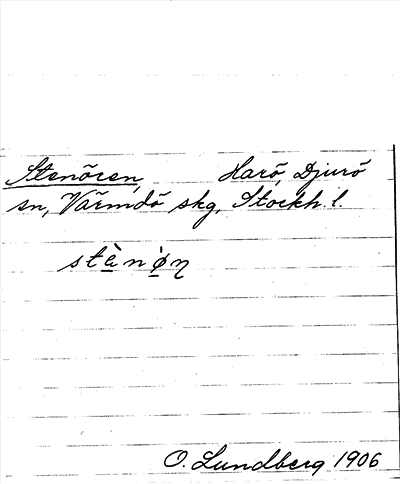 Stenören, Harö, Djurö
sn, Värmdö skg, Stockh. l.
stènø̀n
O. Lundberg 1906